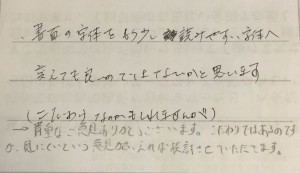 ・書面の字体をもう少し読みやすい字体へ
変えても良いのではないかと思います
(こだわりなのかもしれませんが)
→貴重なご意見ありがとうございます。こだわりではあるのです
が、見にくいという意見が多ければ検討させていただきます。